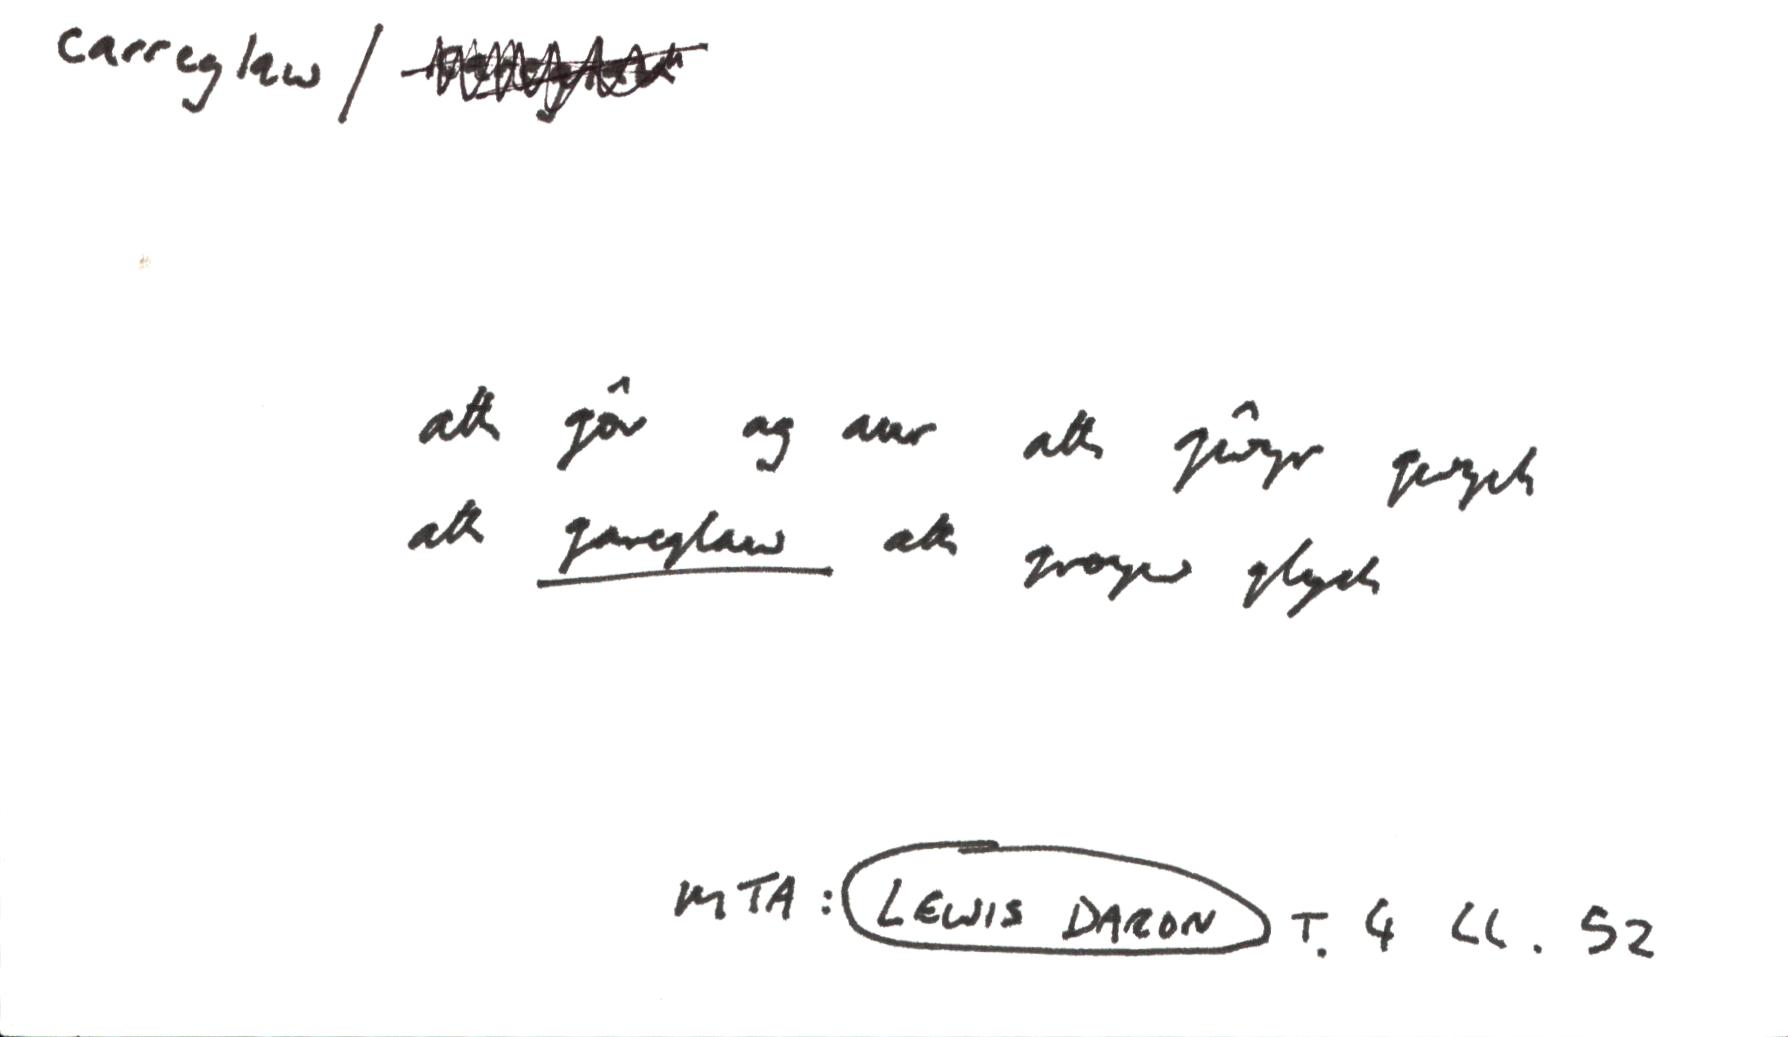 carreglaw /
ath gôr ag aur ath gŵyr gwych
ath gareglaw ath groyw glych
MTA: LEWIS DARON T. 4 LL. 52